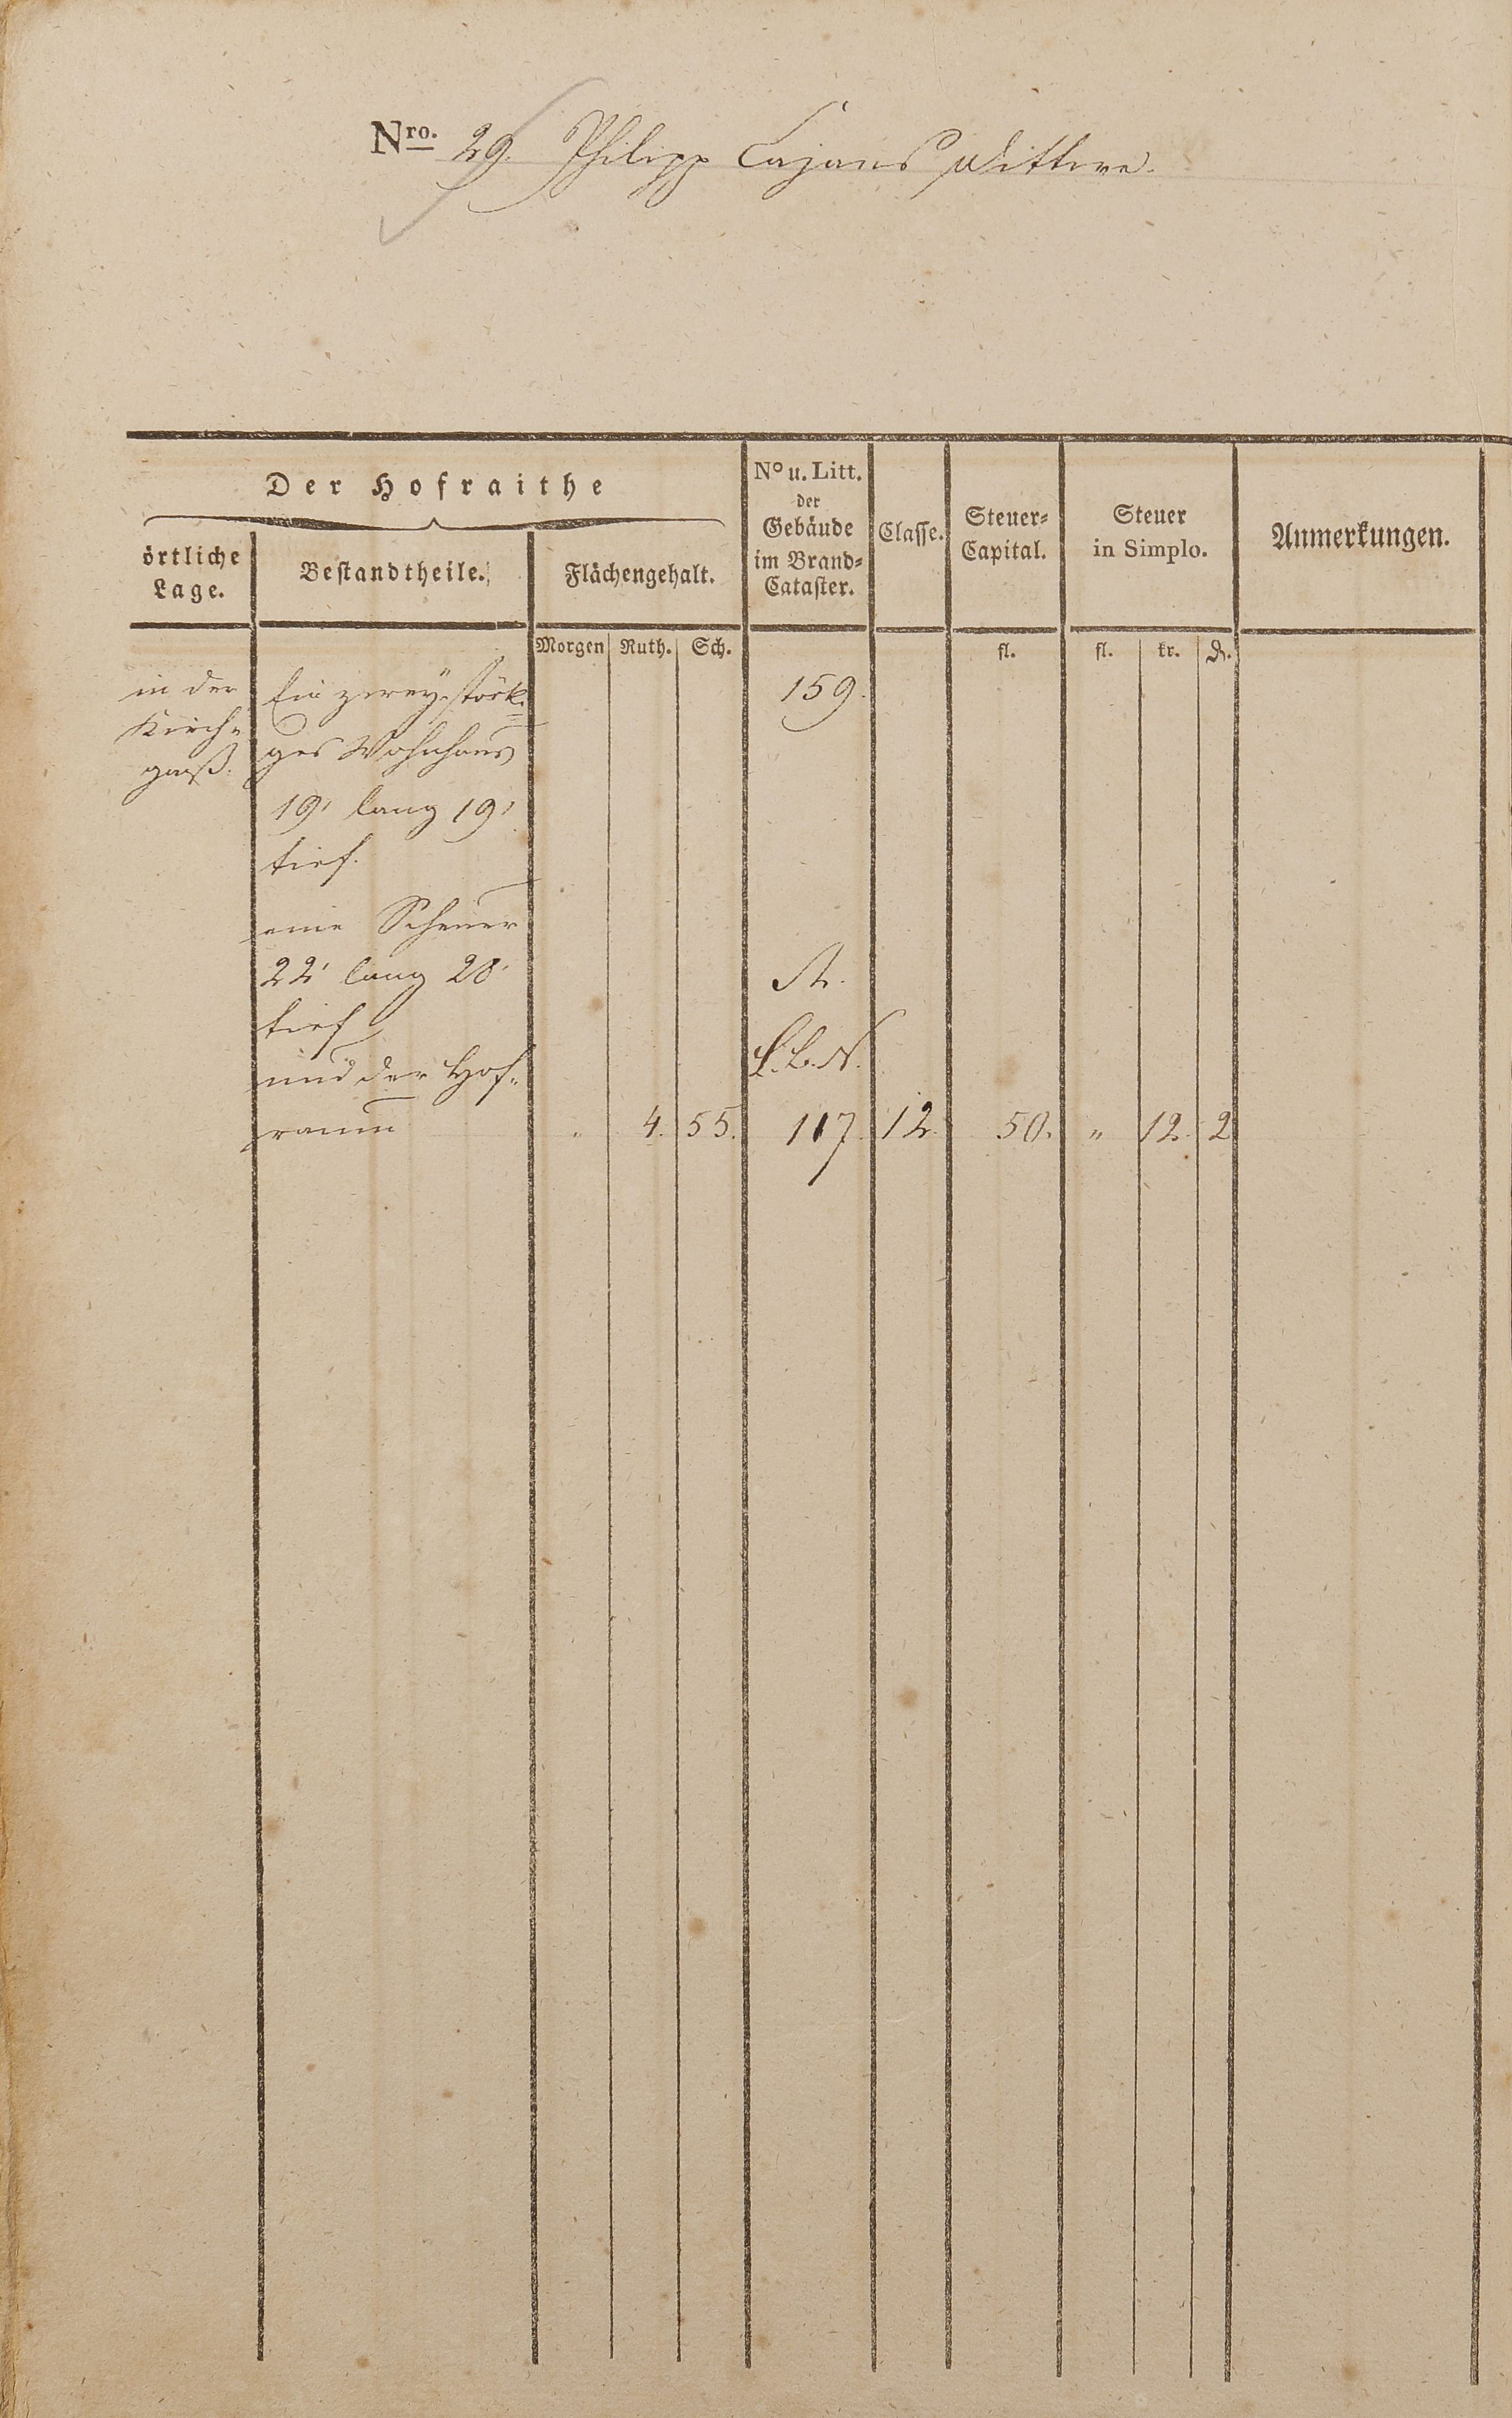 Nro. 29. Philipp Cajans Wittwe.
Der Hofraithe
örtliche Lage.
Bestandtheile.
Flächengehalt.
No u. Litt. der Gebäude im Brand-Cataster.
Classe.
Steuer-Capital.
Steuer in Simplo.
Anmerkungen.
Morgen Ruth. Sch. fl. fl. kr. d.
in der Ein zweystöck= 159.
Kirch= ges Wohnhaus
gaß. 19' lang 19'
tief.
eine Scheuer
22' lang 28' A.
tief
und der Hof= L. B. N.
raum " 4. 55. 117. 12. 50. " 12. 2